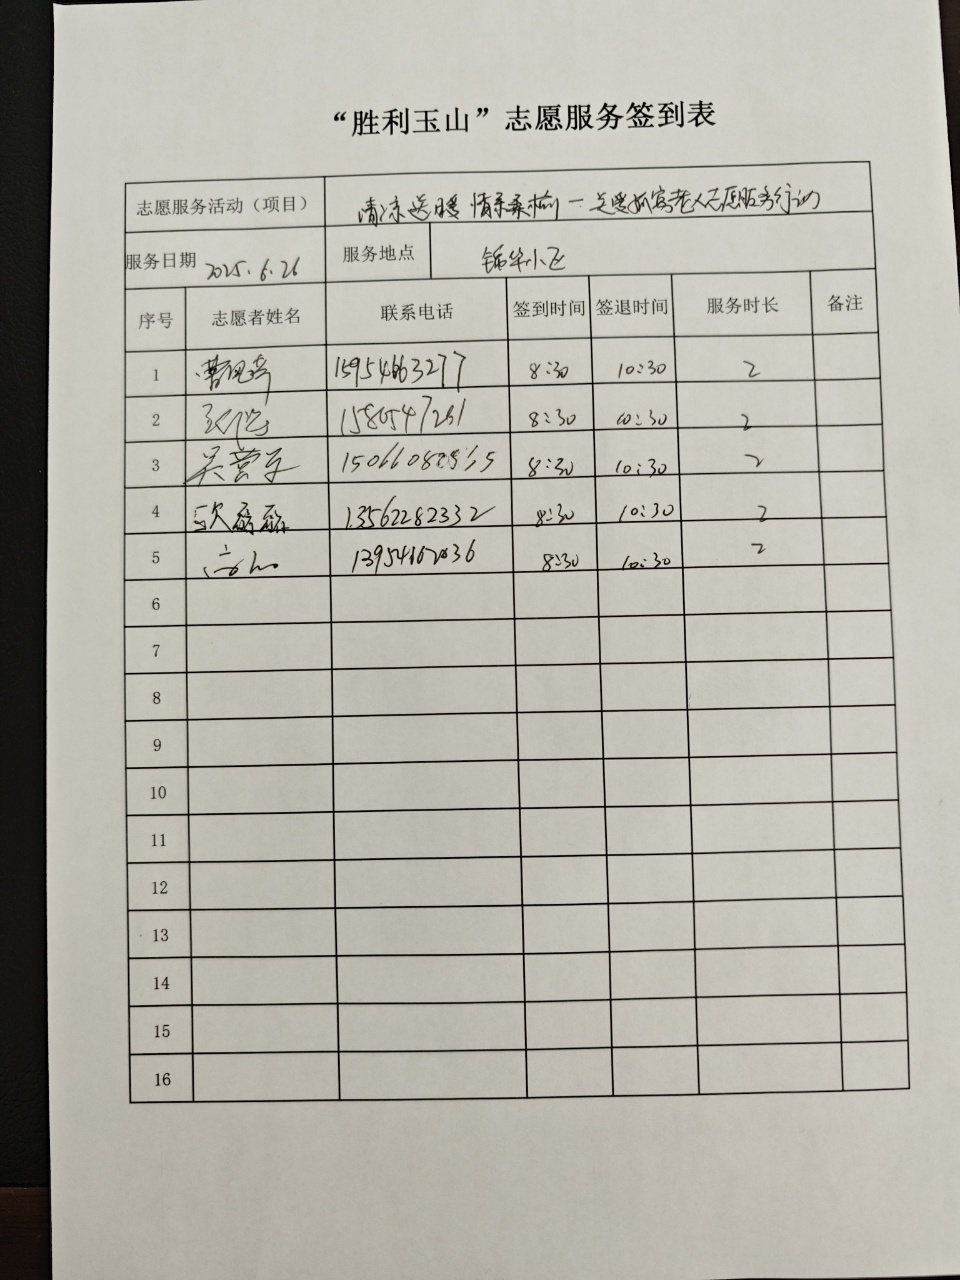 “胜利玉山”志愿服务签到表
志愿服务活动（项目） 清凉送暖 情系桑榆一关爱孤寡老人志愿服务行动
服务日期 2025.6.26 服务地点 锦华小区
序号 志愿者姓名 联系电话 签到时间 签退时间 服务时长 备注
1 曹 15954663277 8:30 10:30 2
2 8:30 10:30 2
3 吴营 8:30 10:30 2
4 13562282332 8:30 10:30 2
5 8:30 10:30 2
6
7
8
9
10
11
12
13
14
15
16